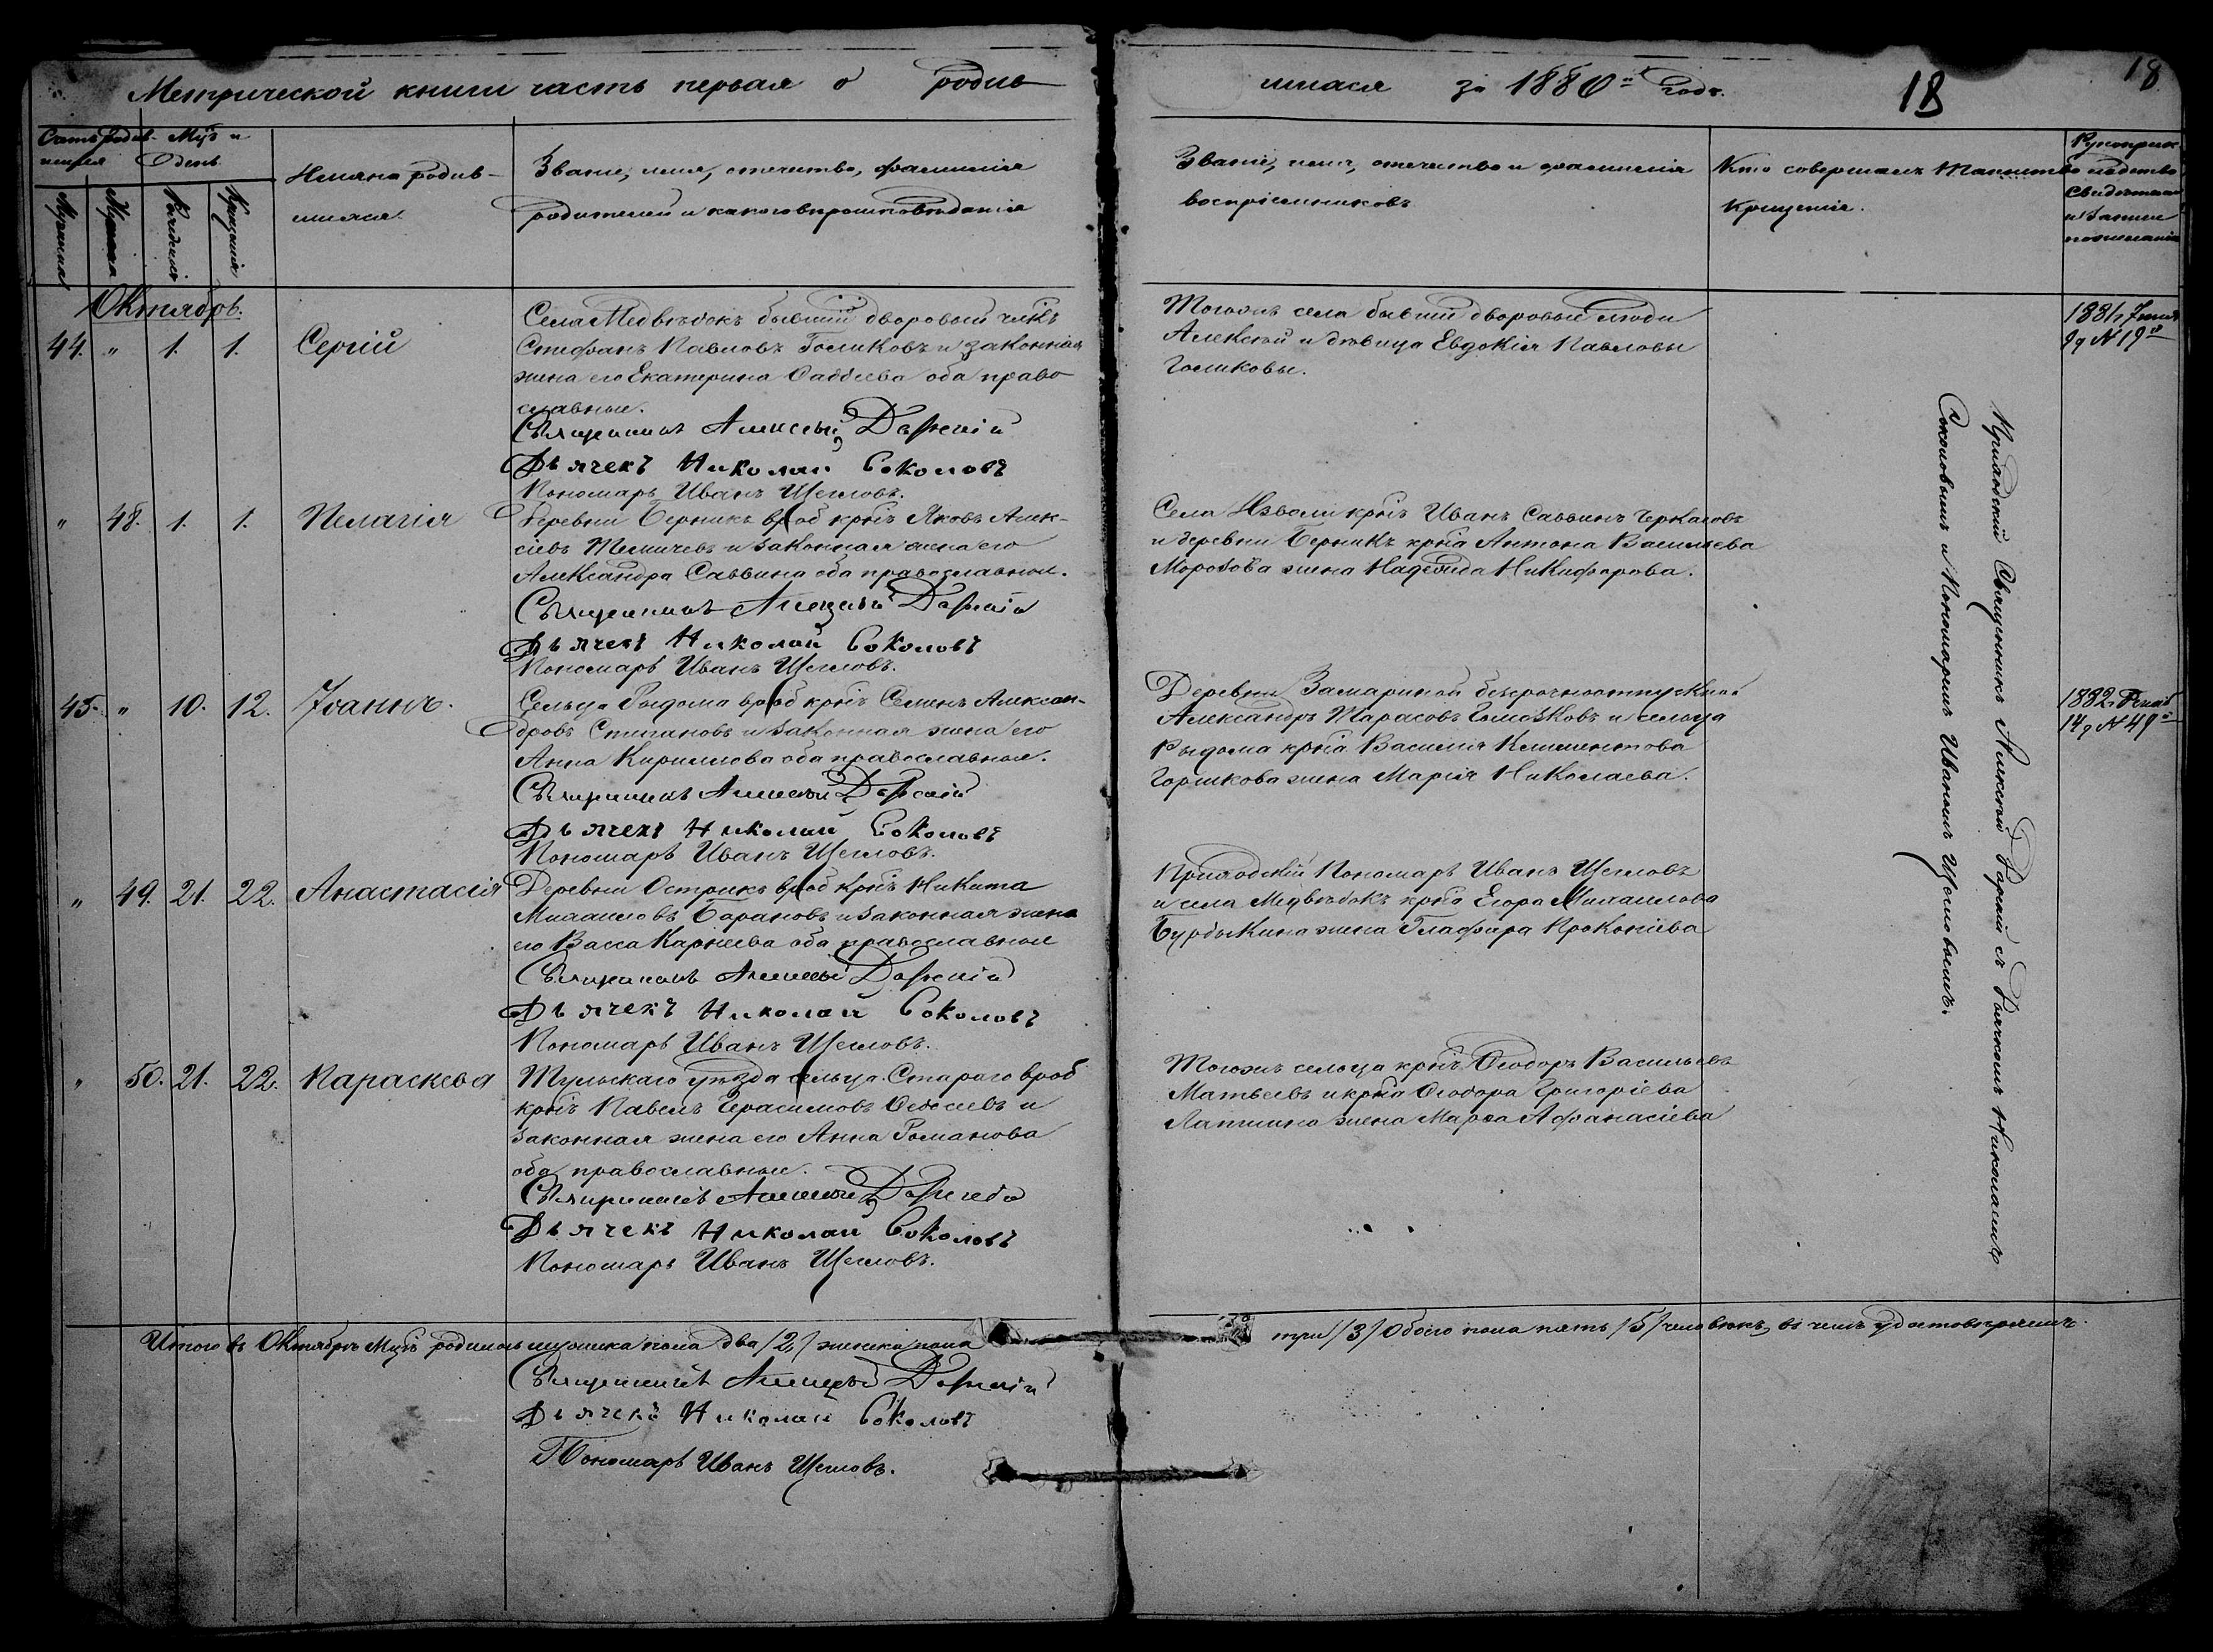 Метрической книги часть первая о родив
шихся за 1880й годъ.
18
18
Счетъ родив-
шихся
Мѣс. и
день
Мужеска
Женска
Рожденія
Крещенія
Имяна родив-
шихся.
Званіе, имя, отчество, фамилія
родителей и какого вѣроисповѣданія
Званіе, имя, отчество и фамилія
воспріемниковъ
Кто совершалъ таинство
крещенія.
Рукоприк-
ладство
свидѣтелей
и записи
по желанію
Октябрь.
44. " 1. 1. Сергій
Села Медвѣдокъ бывшій дворовый челкъ
Стефанъ Павловъ Голиковъ и законная
жена его Екатерина Фаддеева оба право
славные.
Священникъ Алексѣй
Дьячекъ Николай Соколовъ
Пономарь Иванъ Щегловъ.
Тогожъ села бывшіе дворовые люди
Алексѣй и дѣвица Евдокія Павловы
Голиковы.
1881г
9д № 19й
" 48. 1. 1. Пелагія
Деревни Берникъ вроб крнъ Яковъ Алек-
сѣевъ и законная жена его
Александра Саввина оба православные.
Священникъ Алексѣй
Дьячекъ Николай Соколовъ
Пономарь Иванъ Щегловъ.
Села Изволи крнъ Иванъ Саввинъ Черкасовъ
и деревни Берникъ крна Антона Васильева
Морозова жена Надежда Никифорова.
45. " 10. 12. Іоаннъ.
Сельца Рыдома вроб крнъ Семенъ Алексан-
дровъ Степановъ и законная жена его
Анна Кириллова оба православные.
Священникъ Алексѣй
Дьячекъ Николай Соколовъ
Пономарь Иванъ Щегловъ.
Деревни Замариной безсрочноотпускной
Александръ Тарасовъ и сельца
Рыдома крна Василія Климентова
Горшкова жена Марія Николаева.
1882г
14д № 49й
" 49. 21. 22. Анастасія
Деревни Острикъ вроб крнъ Никита
Михаиловъ Барановъ и законная жена
его Васса Карнеева оба православные
Священникъ Алексѣй
Дьячекъ Николай Соколовъ
Пономарь Иванъ Щегловъ.
Приходскій Пономарь Иванъ Щегловъ
и села Медвѣдокъ крна Егора Михаилова
Бурдыкина жена Глафира Прокопіева
" 50. 21. 22. Параскева
Тульскаго уѣзда сельца Стараго вроб
крнъ Павелъ Герасимовъ и
законная жена его Анна Романова
оба православные.
Священникъ Алексѣй
Дьячекъ Николай Соколовъ
Пономарь Иванъ Щегловъ.
Тогожъ сельца крнъ Ѳеодоръ Васильевъ
Матвеевъ и крна Ѳеодора Григоріева
Лапшина жена Марѳа Афанасіева
Приходскій Священникъ Алексѣй съ Дьячкомъ Николаемъ
Соколовымъ и Пономаремъ Иваномъ Щегловымъ.
Итого въ Октябрѣ Мцѣ родилось мужеска пола два /2/ женска пола
три /3/ Обоего пола пять /5/ человѣкъ, въ чемъ удостовѣряемъ.
Священникъ Алексѣй
Дьячекъ Николай Соколовъ
Пономарь Иванъ Щегловъ.